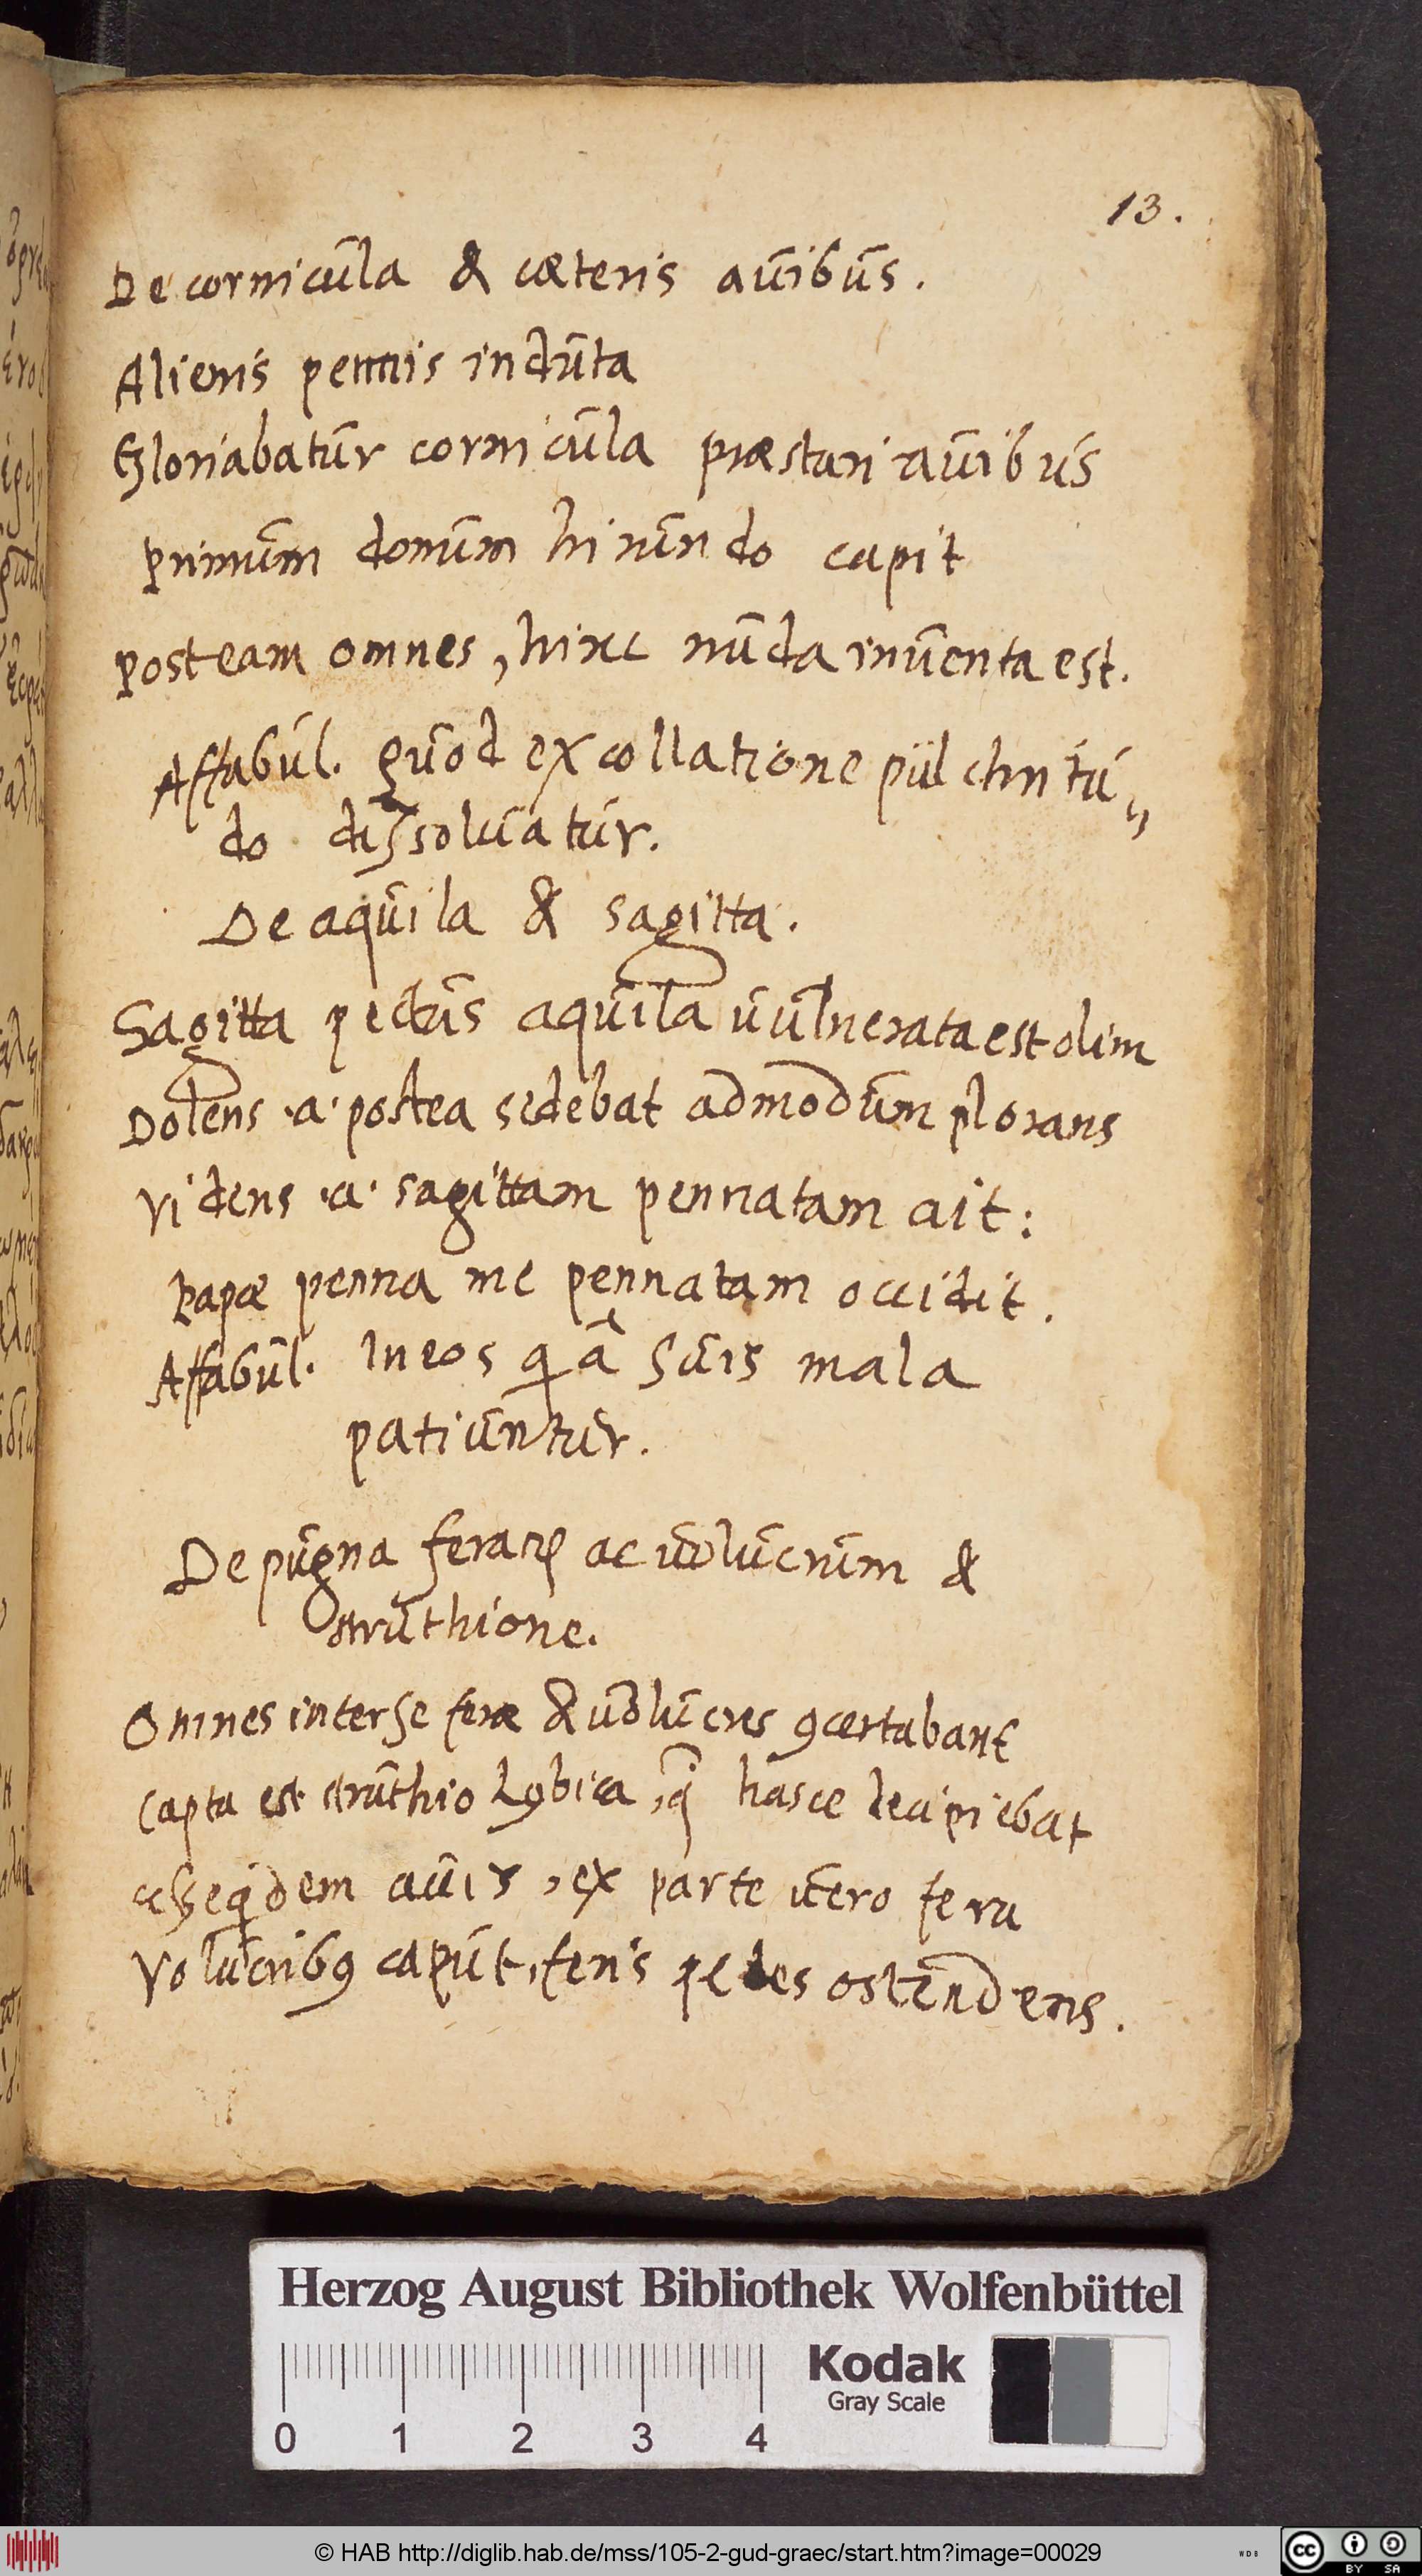 13.
De cornicula & cæteris auibus.
Alienis pennis induta
Gloriabatur cornicula præstari auibus
Primum donum hirundo capit
Posteam omnes, hinc nuda inuenta est.
Affabul. quod ex collatione pulchritu„
do dissoluatur.
De aquila & sagitta.
Sagitta pectus aquila uulnerata est olim
Dolens .a. postea sedebat admodum plorans
Videns .a. sagittam pennatam ait:
Papæ penna me pennatam occidit.
Affabul. In eos q a suis mala
patiuntur.
De pugna ferarꝝ ac uolucrum &
struthione.
Omnes inter se feræ & uolucres ꝯcertabant
Capta est struthio Lybica, q hasce decipiebat
seqdem auis, ex parte uero fera
Volucribꝰ caput, feris pedes ostendens.
Herzog August Bibliothek Wolfenbüttel
Kodak
Gray Scale
0 1 2 3 4
© HAB http://diglib.hab.de/mss/105-2-gud-graec/start.htm?image=00029
WDB
cc BY SA